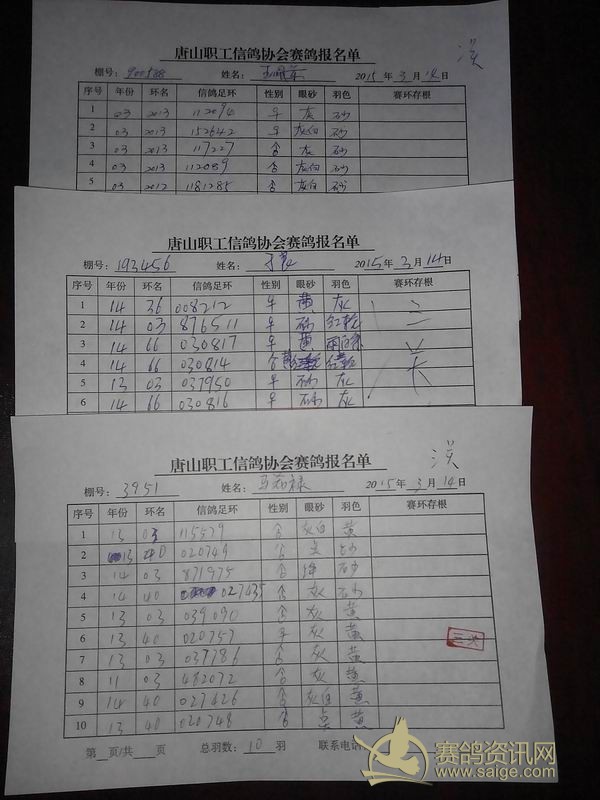 唐山职工信鸽协会赛鸽报名单
汉
棚号: 900588 姓名: 2015年3月14日
序号 年份 环名 信鸽足环 性别 眼砂 羽色 赛环存根
1 03 2013 112094 早 灰 砂
2 03 2013 152642 早 灰白 砂
3 03 2013 117227 含 灰 砂
4 03 2013 112089 含 灰白 砂
5 03 2012 1181285 含 灰白 砂
唐山职工信鸽协会赛鸽报名单
棚号: 193456 姓名: 2015年3月14日
序号 年份 环名 信鸽足环 性别 眼砂 羽色 赛环存根
1 14 36 008212 早 黄 灰
2 14 03 876511 早 砂 红轮
3 14 66 030817 早 黄
4 14 66 030814 含
5 13 03 037950 早 砂 灰
6 14 66 030816 早 砂 灰
唐山职工信鸽协会赛鸽报名单
汉
棚号: 3951 姓名: 2015年3月14日
序号 年份 环名 信鸽足环 性别 眼砂 羽色 赛环存根
1 13 03 115579 含 灰白 黄
2 13 40 020749 含 砂
3 14 03 871975 含 砂
4 14 40 027435 含 灰 砂
5 13 03 039090 含 灰 黄
6 13 40 020757 早 灰 黄
7 13 03 037786 含 灰 黄
8 11 03 482072 含 灰 黄
9 14 40 027626 含 灰白 黄
10 13 40 020748 含 黄
第 页/共 页 总羽数: 10 羽 联系电话
赛鸽资讯网
www.saige.com